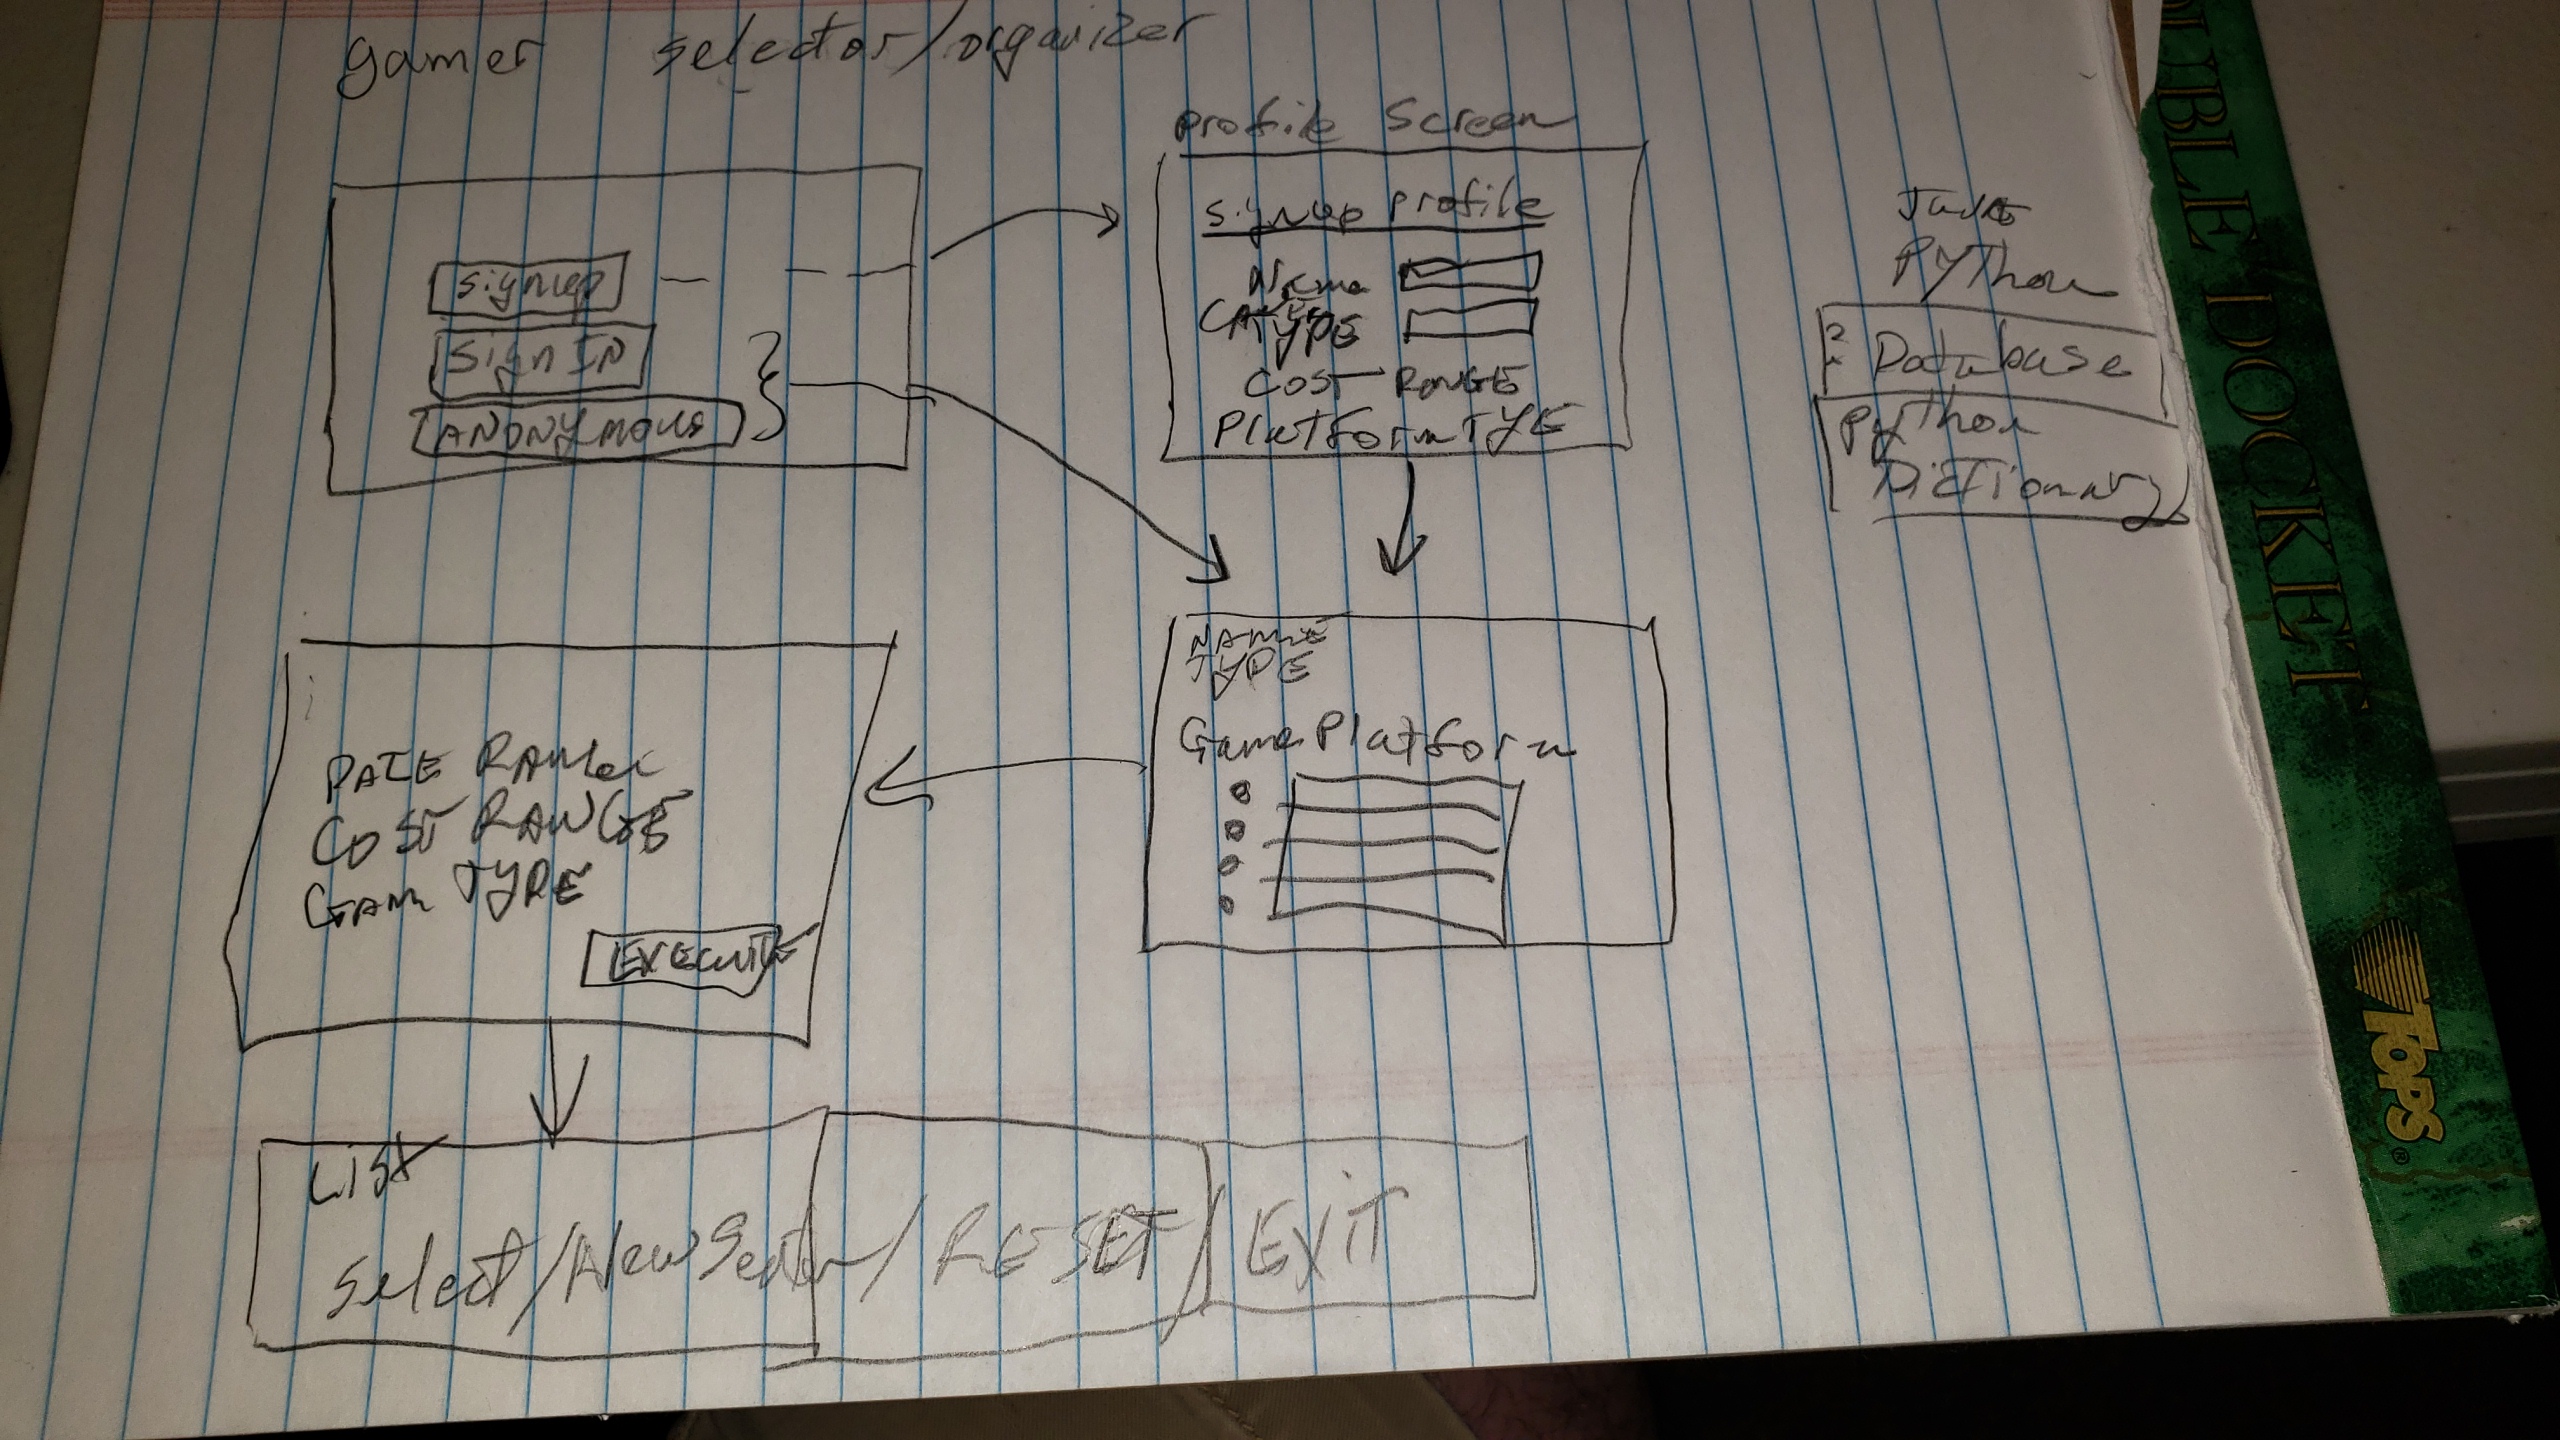 gamer selector/organizer
signup
Sign IN
ANONYMOUS
profile Screen
signup profile
Name
TYPE
COST RANGE
PlatForm TYE
Python
? Database
Python
Dictionary
NAME
TYPE
Game Platform
COST RANGE
Gam TYPE
EXECUTE
List
Select/New / RESET / EXIT
DOUBLE DOCKET
TOPS®